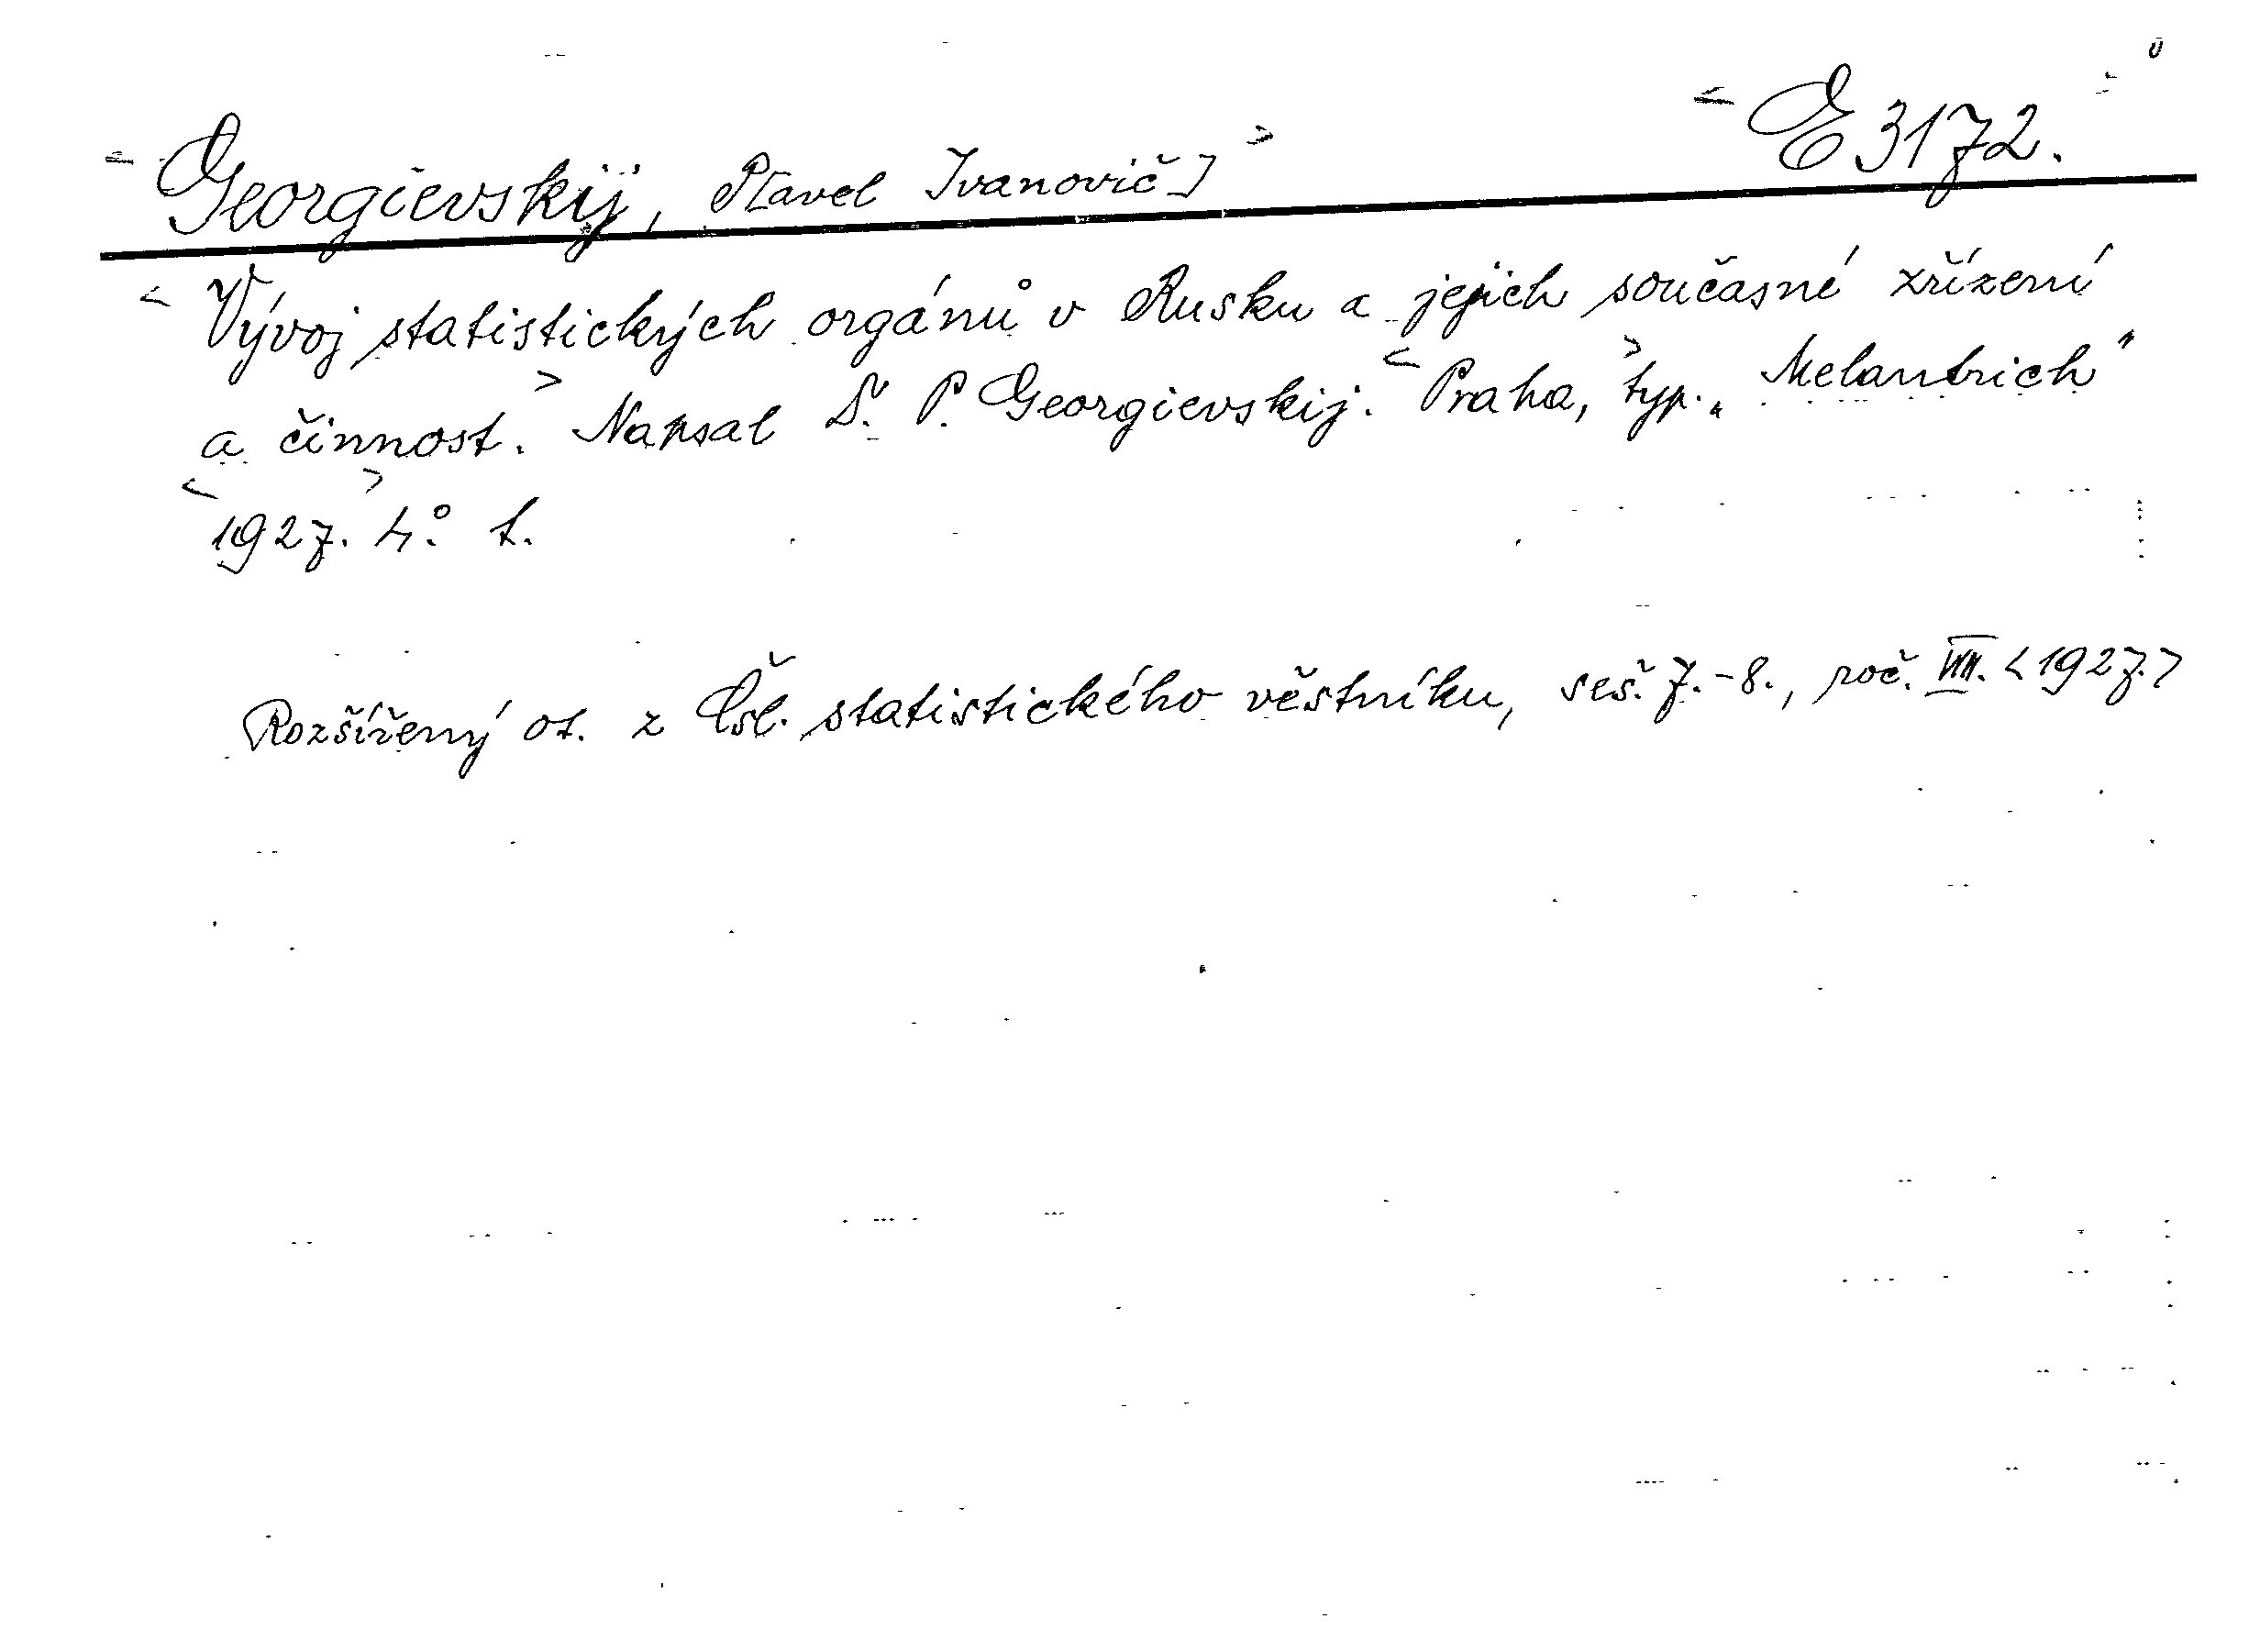 <E 3172.>
<Georgievskij, P[avel Ivanovič]>
<Vývoj statistických orgánů v Rusku a jejich současné zřízení
a činnost.> Napsal P. Georgievskij. <Praha,> typ. „Melantrich"
<1927.> 4° t.
Rozšířený ot. z Čsl. statistického věstníku, seš. 7.-8., roč. VIII. <1927.>